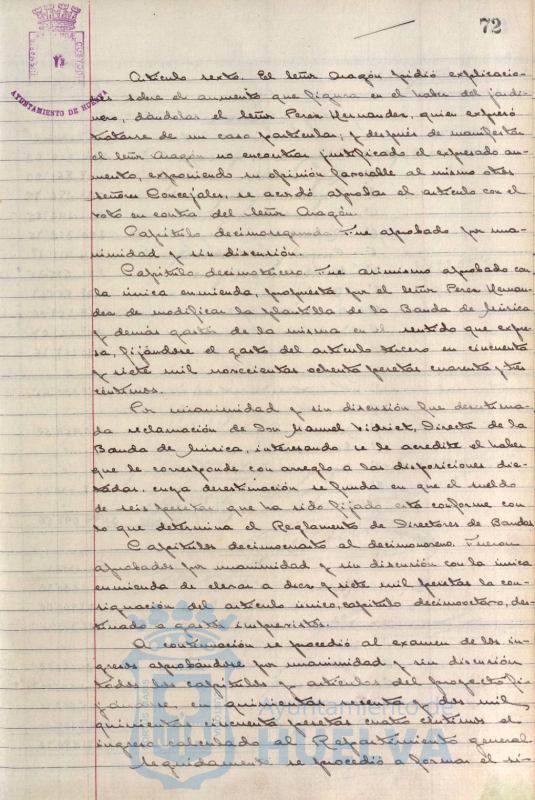 72
AYUNTAMIENTO DE HUELVA
Artículo sexto. El señor Aragón pidió explicacio-
nes sobre el aumento que figura en el haber del jardi-
nero, dándolas el señor Perez Hernandez, quien expresó
tratarse de un caso particular, y después de manifestar
el señor Aragón no encontrar justificado el expresado au-
mento, exponiendo su opinión favorable al mismo otros
señores Concejales, se acordó aprobar el artículo con el
voto en contra del señor Aragón.
Capítulo decimosegundo. Fue aprobado por una-
nimidad y sin discusión.
Capítulo decimotercero. Fue asimismo aprobado con
la única enmienda, propuesta por el señor Perez Hernan-
dez de modificar la plantilla de la Banda de Música
y demás gastos de la misma en el sentido que expre-
sa, fijándose el gasto del artículo tercero en cincuenta
y siete mil novecientas ochenta pesetas cuarenta y tres
céntimos.
Por unanimidad y sin discusión fue desestima-
da reclamación de Don Manuel Director de la
Banda de Música, interesando se le acredite el haber
que le corresponde con arreglo a las disposiciones dic-
tadas, cuya desestimación se funda en que el sueldo
de seis pesetas que ha sido fijado está conforme con
lo que determina el Reglamento de Directores de Bandas
Capítulos decimocuarto al decimonoveno. Fueron
aprobados por unanimidad y sin discusión con la única
enmienda de elevar a diez y siete mil pesetas la con-
signación del artículo único, capítulo decimooctavo, des-
tinado a gastos imprevistos.
A continuación se procedió al examen de los in-
gresos aprobándose por unanimidad y sin discusión
todos los capítulos y artículos del proyecto fi-
jándose, en quinientas sesenta y dos mil
quinientas cincuenta pesetas cuatro céntimos el
ingreso calculado al Repartimiento general
Seguidamente se procedió a formar el si-
Ayuntamiento de
HUELVA